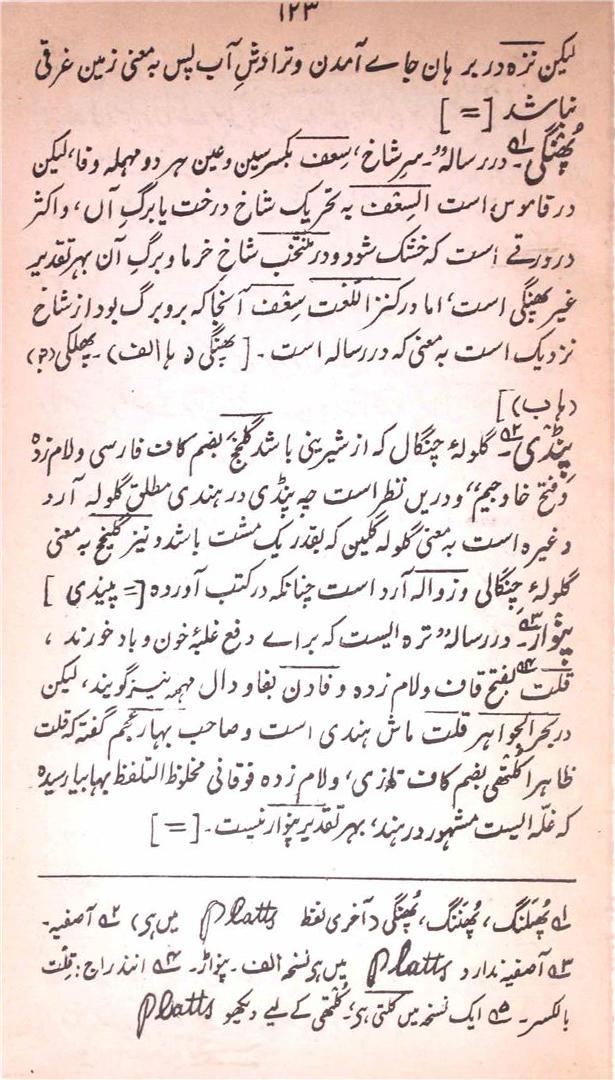 ۱۲۳
لیکن نزہ در برہان جاے آمدن و تراوشِ آب پس بہ معنی زمین غرقی
نباشد [=]
پُھنگی۱ـ در رسالہ "سرِ شاخ، سعف بکسر سین و عین ہر دو مہملہ و فا، لیکن
در قاموس است السعف بہ تحریک شاخ درخت یا برگِ آں، و اکثر
در ورقے است کہ خشک شود و در منتخب شاخِ خرما و برگِ آن بہر تقدیر
غیر پھنگی است، اما در کنز اللغت سعف آنجا کہ بر و برگ بود از شاخ
نزدیک است بہ معنی کہ در رسالہ است۔ [پھنگی (ہا الف)۔ پھلکی (؟)
(ہا ب)]
پنڈی۲ـ گلولۂ چنگال کہ از شیرینی باشد گلنج، بضم کاف فارسی و لام زدہ
و فتح خا و جیم" و دریں نظر است چہ پنڈی در ہندی مطلق گلولہ آرد
وغیرہ است بہ معنی گلولہ گلین کہ بقدر یک مشت باشد و نیز گلنج بہ معنی
گلولۂ چنگالی و زوالہ آرد است چنانکہ در کتب آوردہ [= پیندی]
پنواڑ۳ـ در رسالہ "ترہ ایست کہ براے دفع غلبۂ خون و باد خورند،
قلت۴ بفتح قاف و لام زدہ و فادن بفا و دال مہملہ نیز گویند، لیکن
در بحر الجواہر قلت ماش ہندی است و صاحب بہار عجم گفتہ کہ قلت
ظاہرا کلتھی بضم کاف تازی، و لام زدہ فوقانی مخلوط التلفظ بہا بیا رسیدہ
کہ غلّہ ایست مشہور در ہند، بہر تقدیر پنواڑ نیست۔ [=]
۱ پُھلنگ، پُھننگ، پُھنگی (آخری لفظ Platts میں ہی) ۲ آصفیہ۔
۳ آصفیہ ندارد Platts میں ہی نسخہ الف۔ پنواڑ۔ ۴ انند راج: قِلت
بالکسر۔ ۵ ایک نسخہ میں کلتی ہی، کُلتھی کے لیے دیکھو Platts